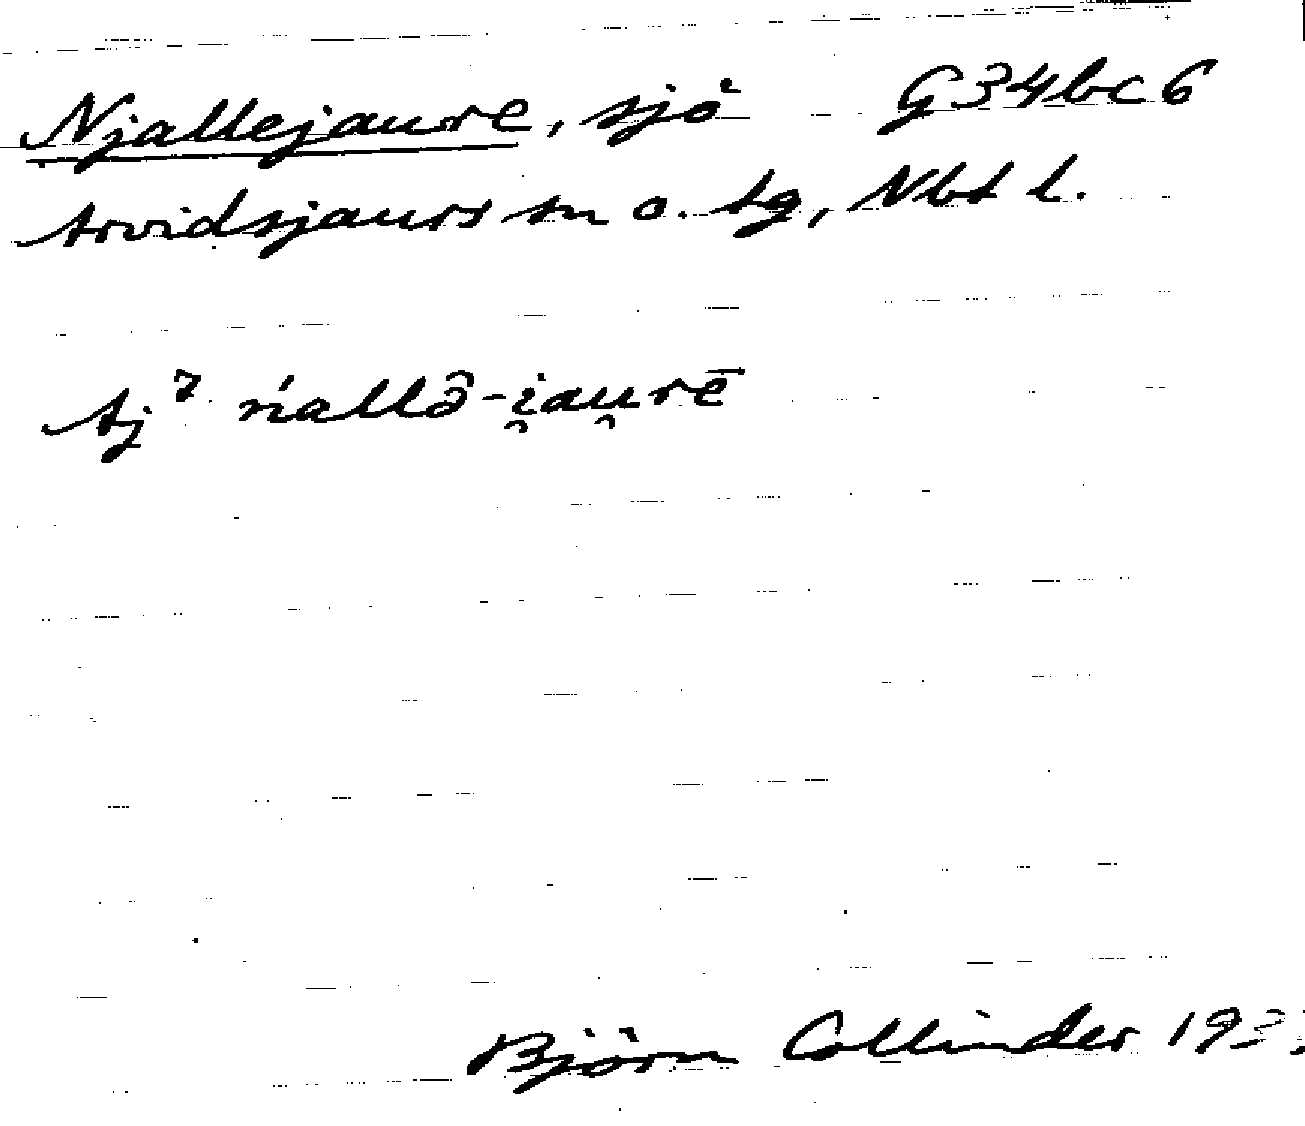 Njallejaure, sjö G34bc6
Arvidsjaurs sn o. tg, Nbt l.
Aj⁷ ńallə̑-i̯au̯rē
Björn Collinder